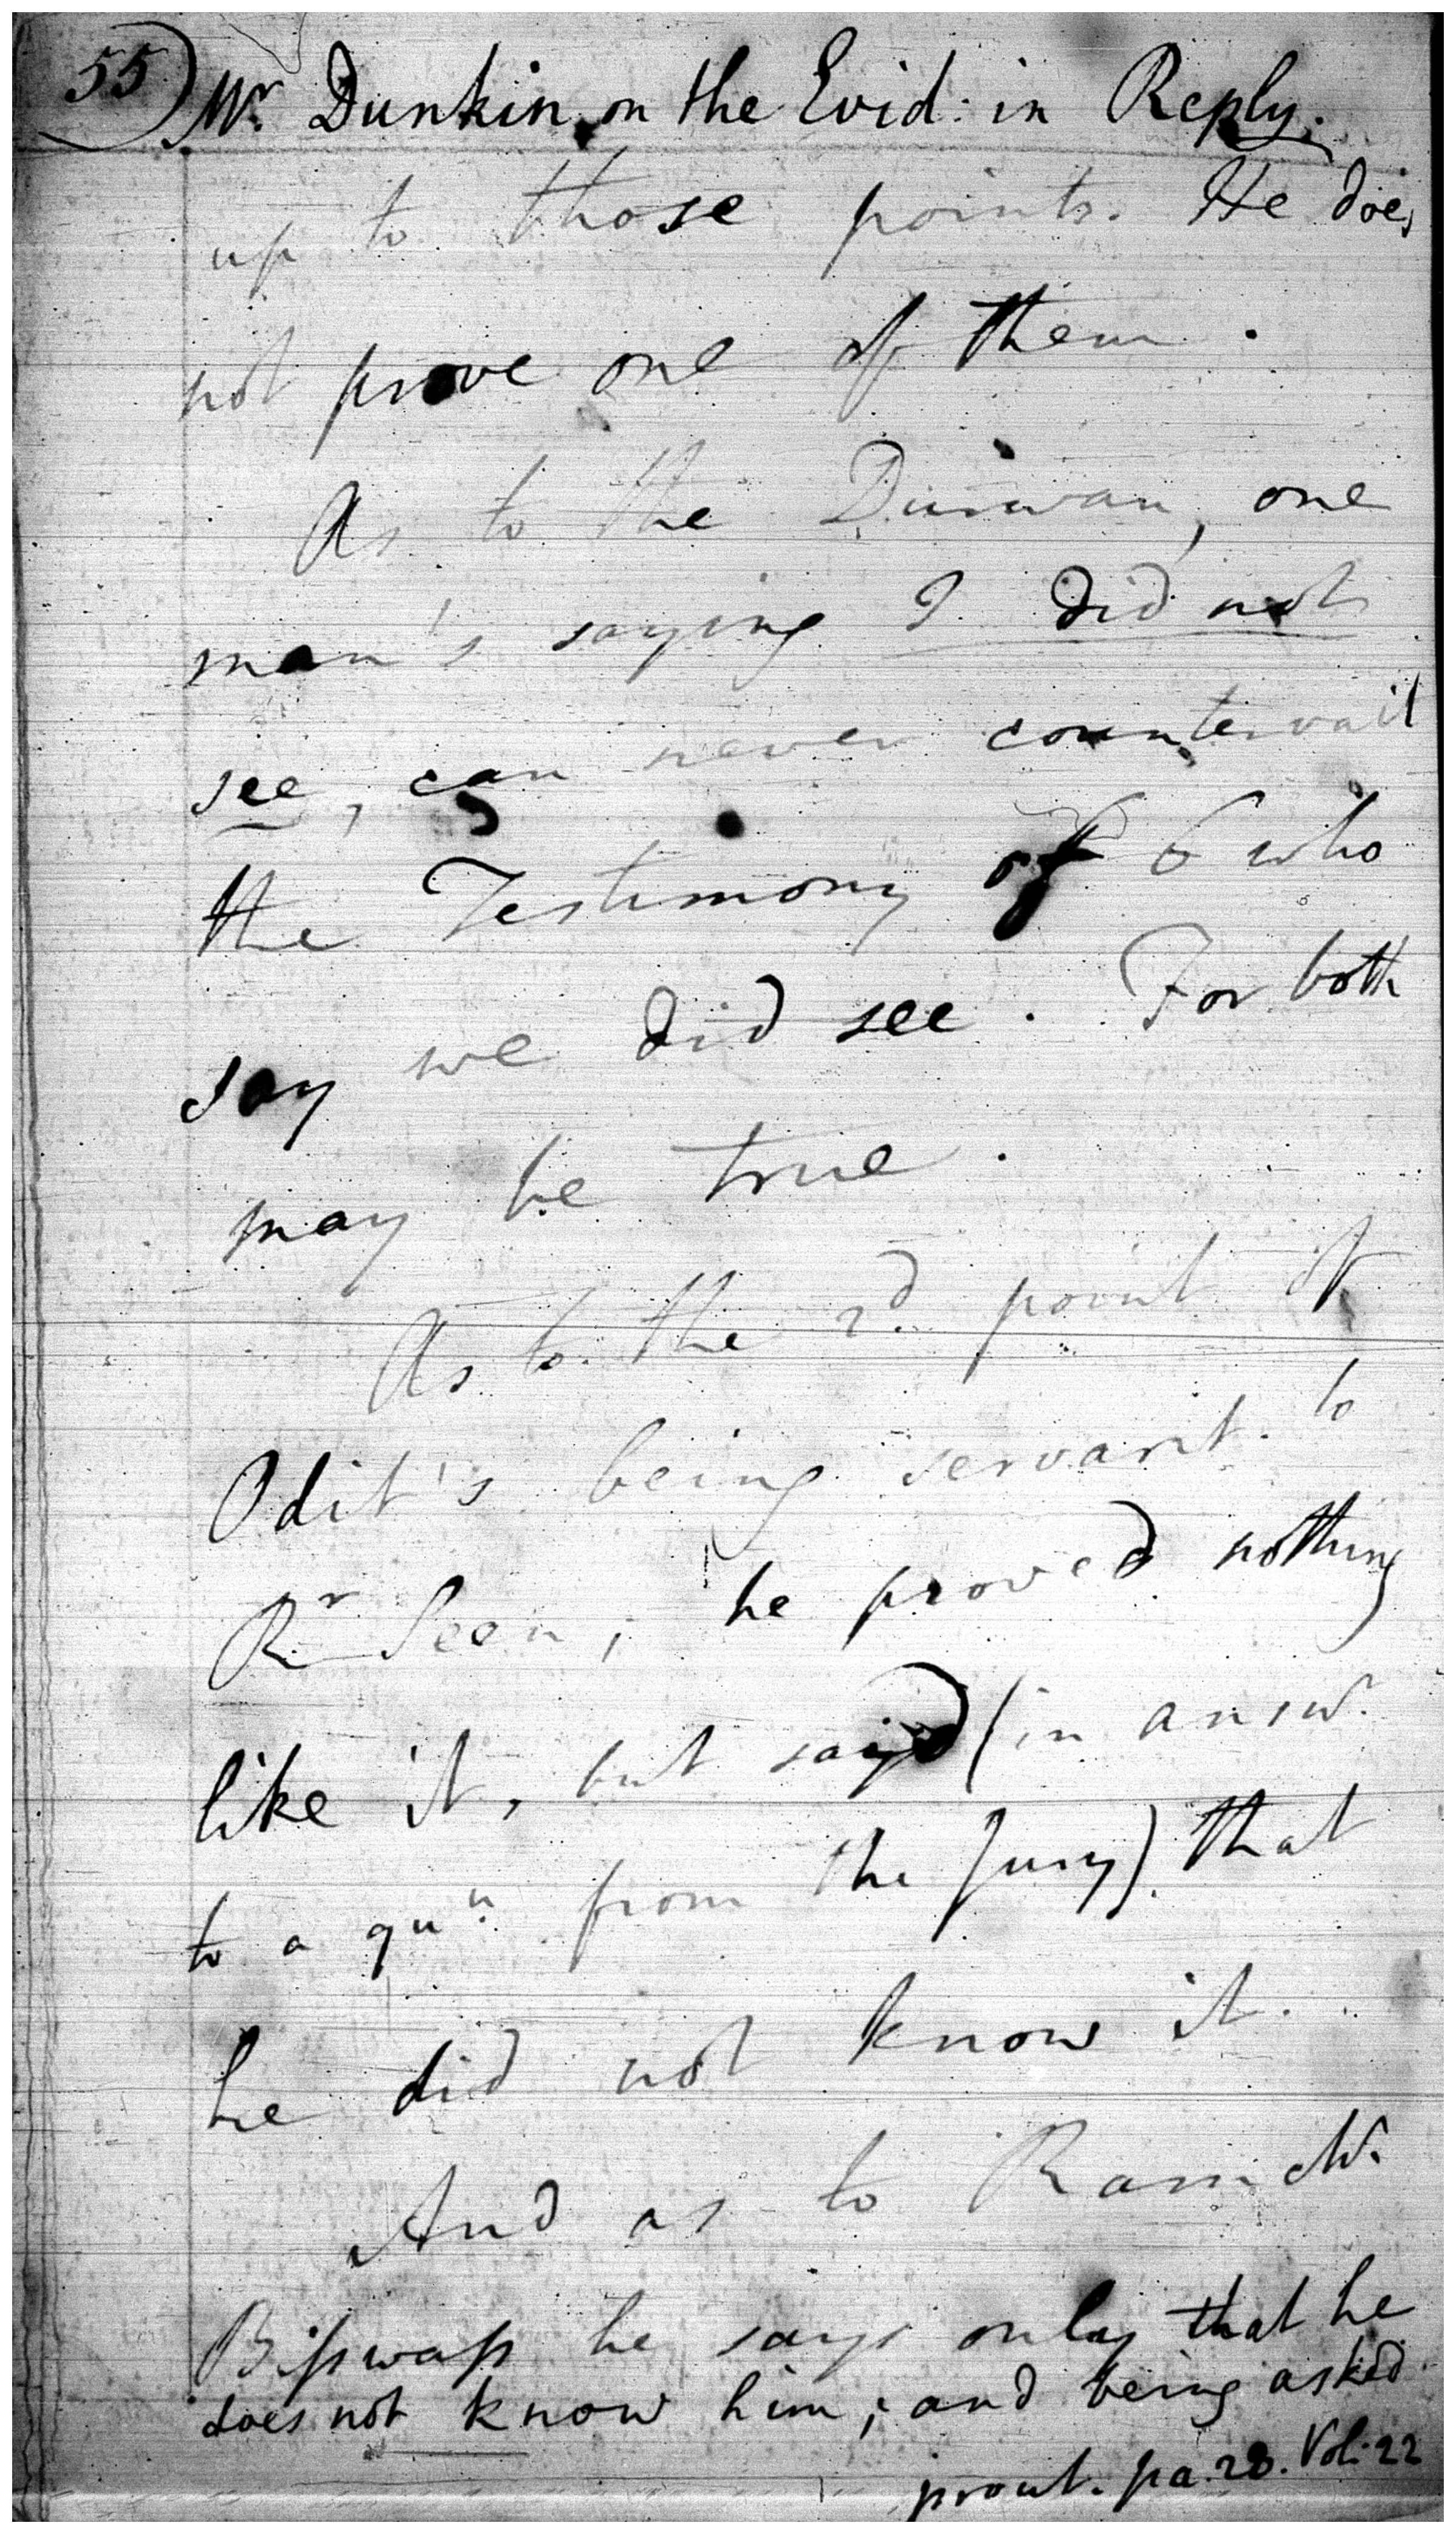 55) Mr. Dunkin on the Evid: in Reply.
up to those points. He does
not prove one of them.
As to the Durwan, one
man's saying I did not
see, can never countervail
the Testimony of 6 who
say we did see. For both
may be true.
As to the 2d. point of
Odit's being servant to
Rr Seen, he proved nothing
like it, but said (in answr.
to a qun. from the Jury) that
he did not know it.
And as to Ram Nr.
Bisswass he says only that he
does not know him; and being asked
prout. pa. 28. Vol: 22